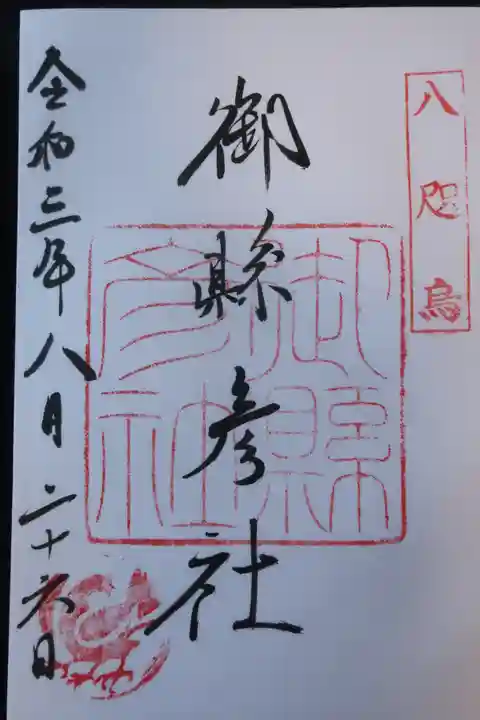 八咫烏
御縣彦社
令和三年八月二十六日
御縣彦社